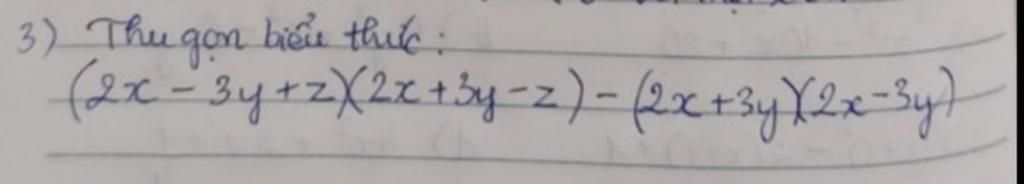 3) Thu gọn biểu thức :
(2x - 3y + z)(2x + 3y - z) - (2x + 3y)(2x - 3y)